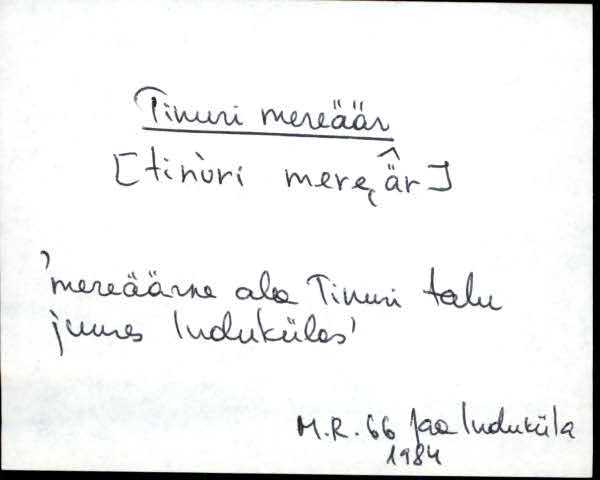 Tinuri mereäär
[tinùri mere̮ä̂r]
'mereäärne ala Tinuri talu
juures Indukülas'
M.R. 66 Jaa Induküla
1984